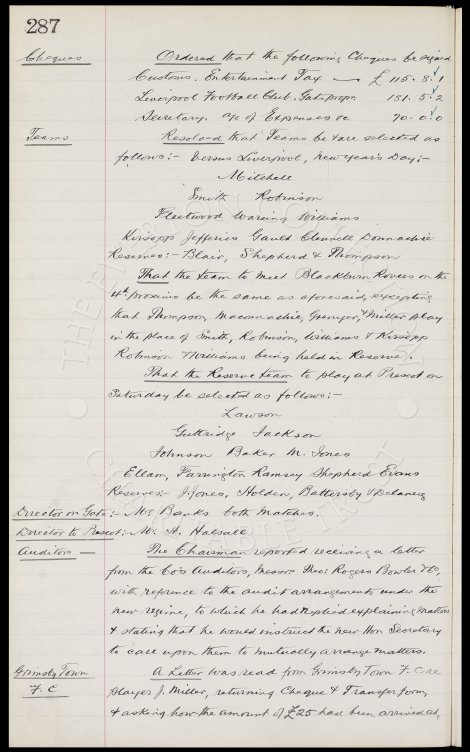 287
Cheques Ordered that the following Cheques be signed
Customs, Entertainment Tax — £ 115. 8. 1
Liverpool Football Club. Gate propn 181. 5. 2
Secretary. a/c of Expenses &c 70. 0. 0
Teams Resolved that Teams be & are selected as
follows:- Versus Liverpool, New Year's Day:-
Mitchell
Smith Robinson
Fleetwood Wareing Williams
Kirsopp Jefferies Gault Clennell Donnachie
Reserves:- Blair, Shepherd & Thompson
That the team to meet Blackburn Rovers on the
4th proximo be the same as aforesaid, excepting
that Thompson, Maconnachie, Grenyer, & Miller play
in the place of Smith, Robinson, Williams & Kirsopp
Robinson & Williams being held in Reserve.
That the Reserve team to play at Prescot on
Saturday be selected as follows:-
Lawson
Guttridge Jackson
Johnson Baker M. Jones
Ellam, Farrington Ramsey Shepherd Evans
Reserves:- J. Jones, Holden, Battersby & Delaney
Director on Gate:- Mr Banks both matches.
Director to Prescot:- Mr. H. Halsall
Auditors — The Chairman reported receiving a letter
from the Co's Auditors, Messrs Theo: Rogers Bowler & Co,
with reference to the audit arrangements under the
new regime, to which he had replied explaining matters
& stating that he would instruct the new Hon Secretary
to call upon them to mutually arrange matters.
Grimsby Town A Letter was read from Grimsby Town F. C re
F. C player J. Miller, returning Cheque & Transfer form,
& asking how the amount of £25 had been arrived at,